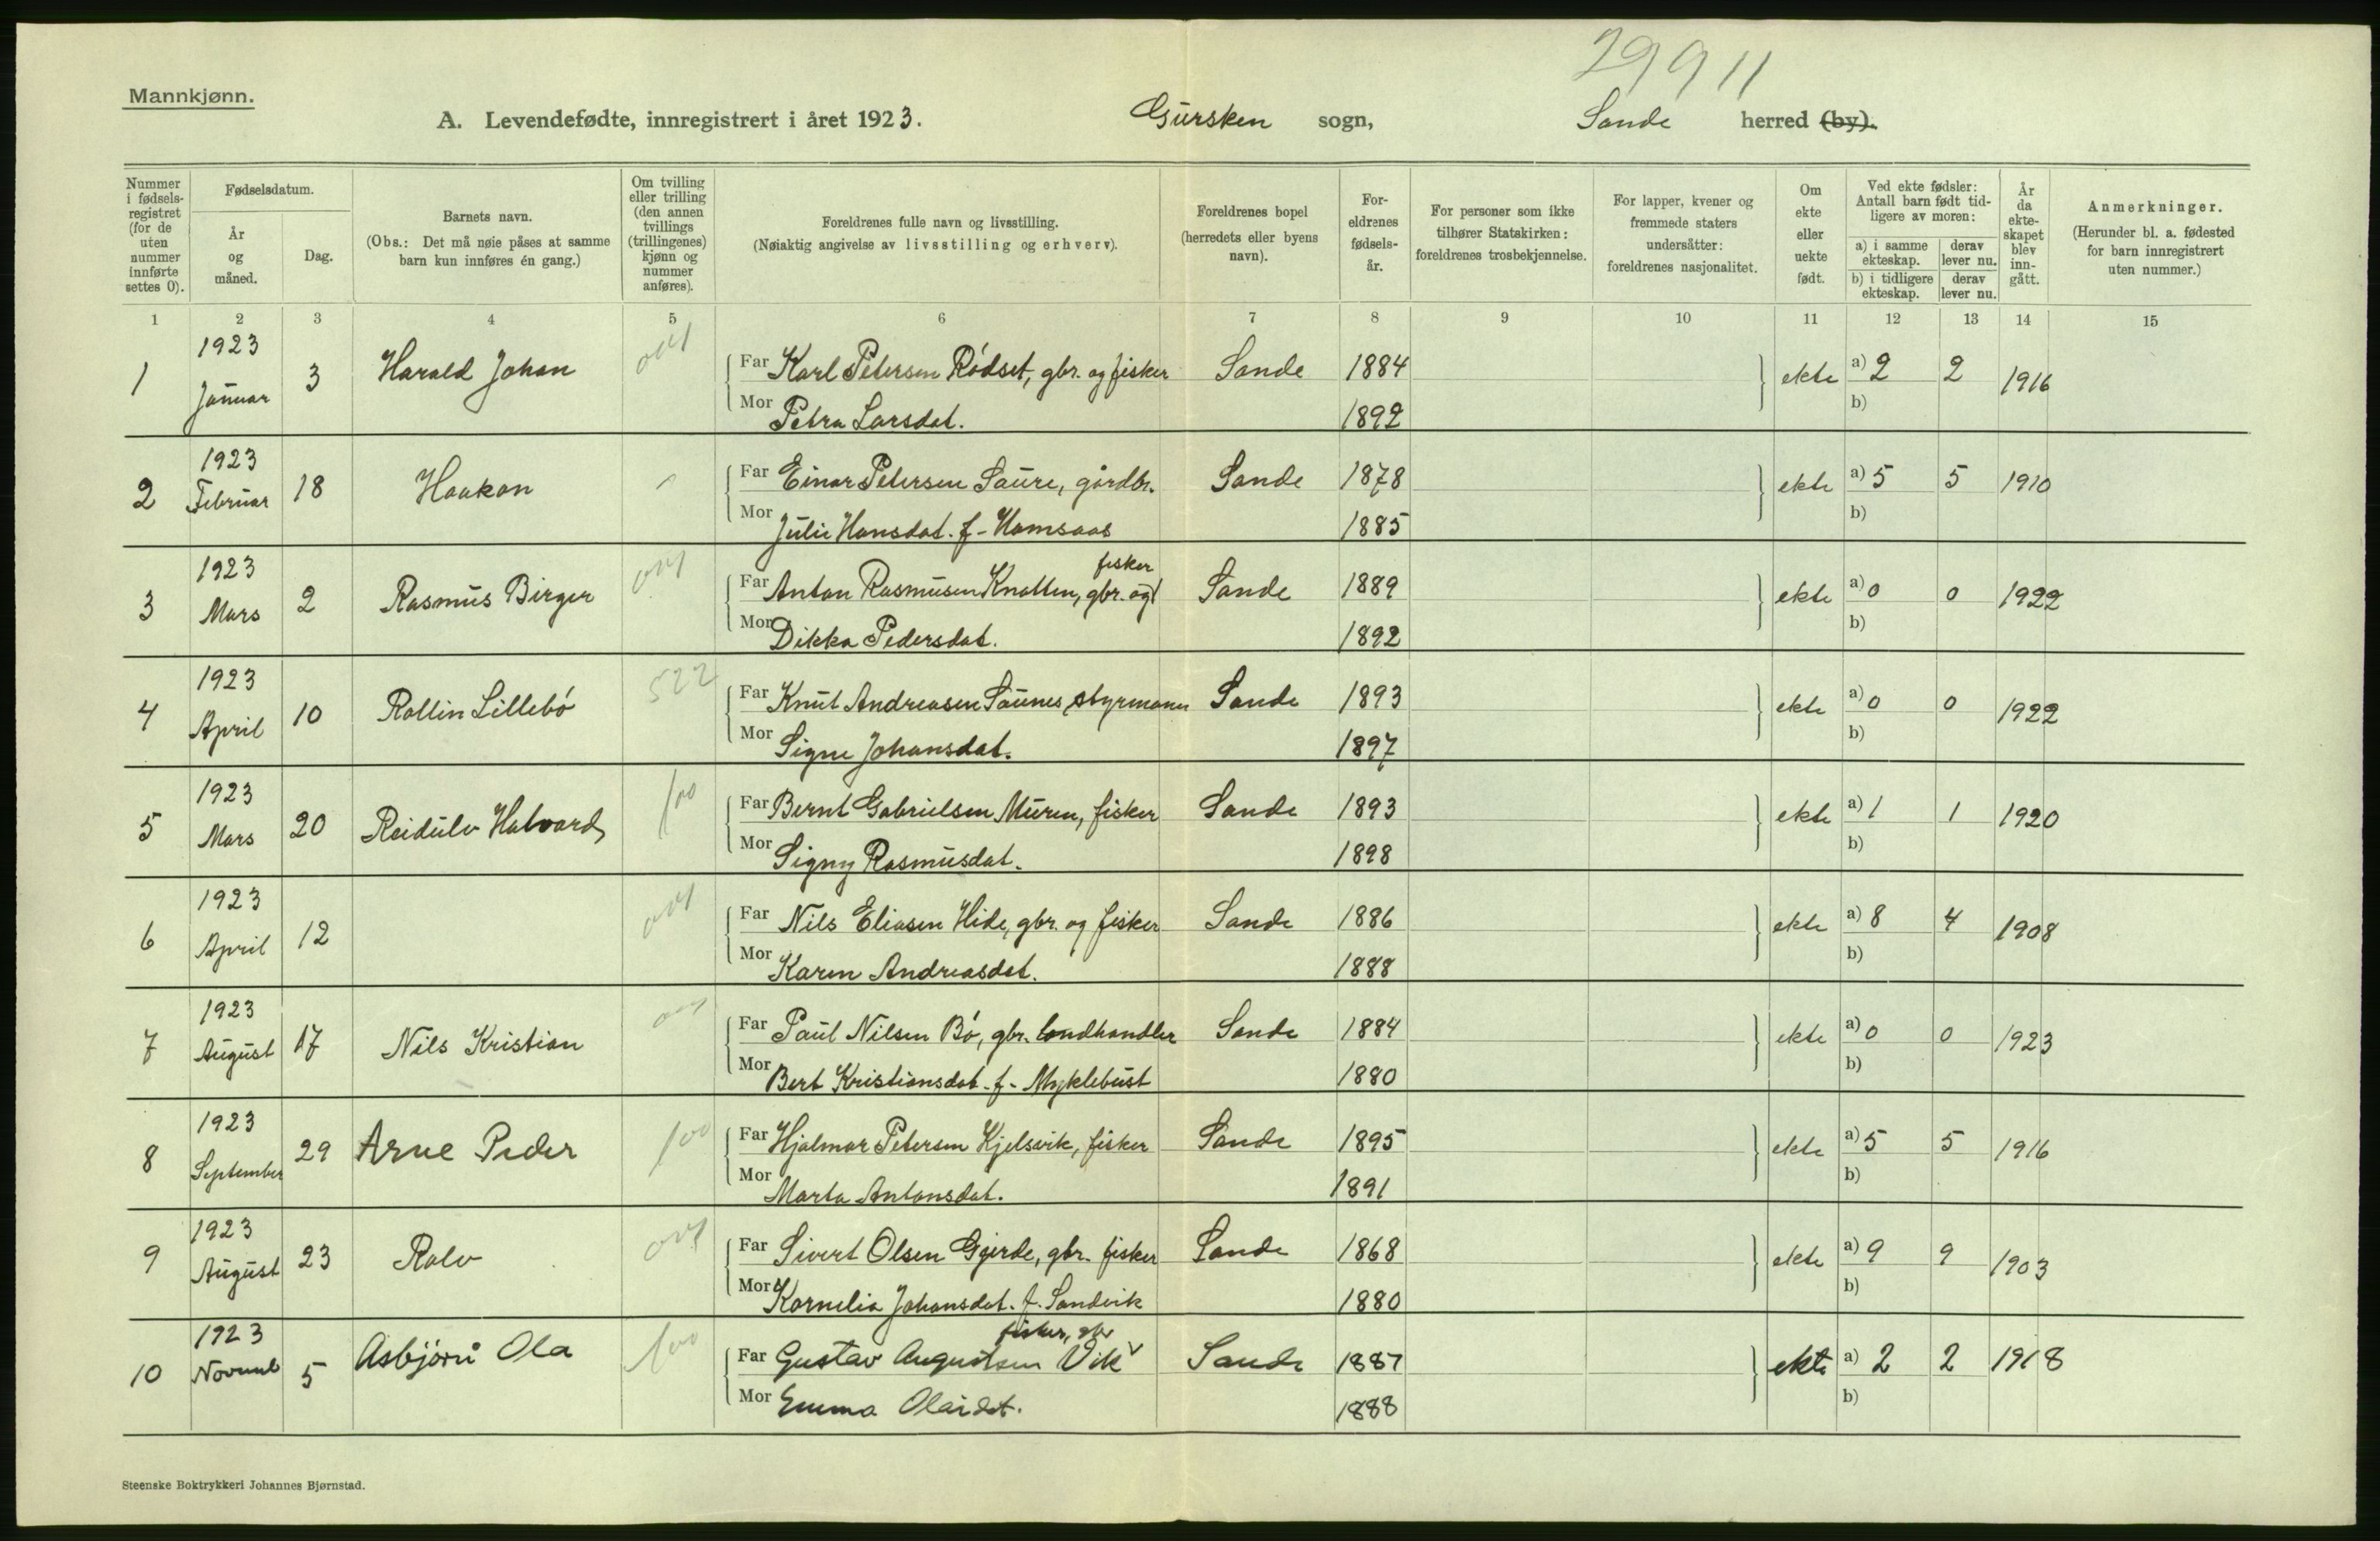 29911
Mannkjønn.
A. Levendefødte, innregistrert i året 1923. Gursken sogn, Sande herred (by).
Nummer i fødselsregistret (for de uten nummer innførte settes 0).
Fødselsdatum.
År og måned.
Dag.
Barnets navn.
(Obs.: Det må nøie påses at samme barn kun innføres én gang.)
Om tvilling eller trilling (den annen tvillings (trillingenes) kjønn og nummer anføres).
Foreldrenes fulle navn og livsstilling.
(Nøiaktig angivelse av livsstilling og erhverv).
Foreldrenes bopel (herredets eller byens navn).
Foreldrenes fødselsår.
For personer som ikke tilhører Statskirken: foreldrenes trosbekjennelse.
For lapper, kvener og fremmede staters undersåtter: foreldrenes nasjonalitet.
Om ekte eller uekte født.
Ved ekte fødsler: Antall barn født tidligere av moren:
a) i samme ekteskap. derav lever nu.
b) i tidligere ekteskap. derav lever nu.
År da ekteskapet blev inngått.
Anmerkninger.
(Herunder bl. a. fødested for barn innregistrert uten nummer.)
1 2 3 4 5 6 7 8 9 10 11 12 13 14 15
1 1923 Januar 3 Harald Johan Far Karl Petersen Rødset, gbr. og fisker Sande 1884 ekte a) 2 2 1916
Mor Petra Larsdat. 1892 b)
2 1923 Februar 18 Haakon Far Einar Petersen Saure, gårdbr. Sande 1878 ekte a) 5 5 1910
Mor Julie Hansdat. f. Hamsaas 1885 b)
3 1923 Mars 2 Rasmus Birger Far Anton Rasmusen Knotten, gbr. og fisker Sande 1889 ekte a) 0 0 1922
Mor Dikka Pedersdat. 1892 b)
4 1923 April 10 Rollin Lillebó 522 Far Knut Andreasen Saunes, styrmann Sande 1893 ekte a) 0 0 1922
Mor Signe Johansdat. 1897 b)
5 1923 Mars 20 Reidulv Halvard 100 Far Bernt Gabrielsen Muren, fisker Sande 1893 ekte a) 1 1 1920
Mor Signy Rasmusdat. 1898 b)
6 1923 April 12 Far Nils Eliasen Hide, gbr. og fisker Sande 1886 ekte a) 8 4 1908
Mor Karen Andreasdat. 1888 b)
7 1923 August 17 Nils Kristian Far Paul Nilsen Bó, gbr. landhandler Sande 1884 ekte a) 0 0 1923
Mor Bert Kristiansdat. f. Myklebust 1880 b)
8 1923 September 29 Arne Peder 100 Far Hjalmar Petersen Kjelsvik, fisker Sande 1895 ekte a) 5 5 1916
Mor Marta Antonsdat. 1891 b)
9 1923 August 23 Ralv Far Sivert Olsen Gjerde, gbr. fisker Sande 1868 ekte a) 9 9 1903
Mor Kornelia Johansdat. f. Sandvik 1880 b)
10 1923 Novemb 5 Asbjörn Ola 100 Far Gustav Augustsen Vik fisker, gbr Sande 1887 ekte a) 2 2 1918
Mor Emma Olaisdt. 1888 b)
Steenske Boktrykkeri Johannes Bjørnstad.